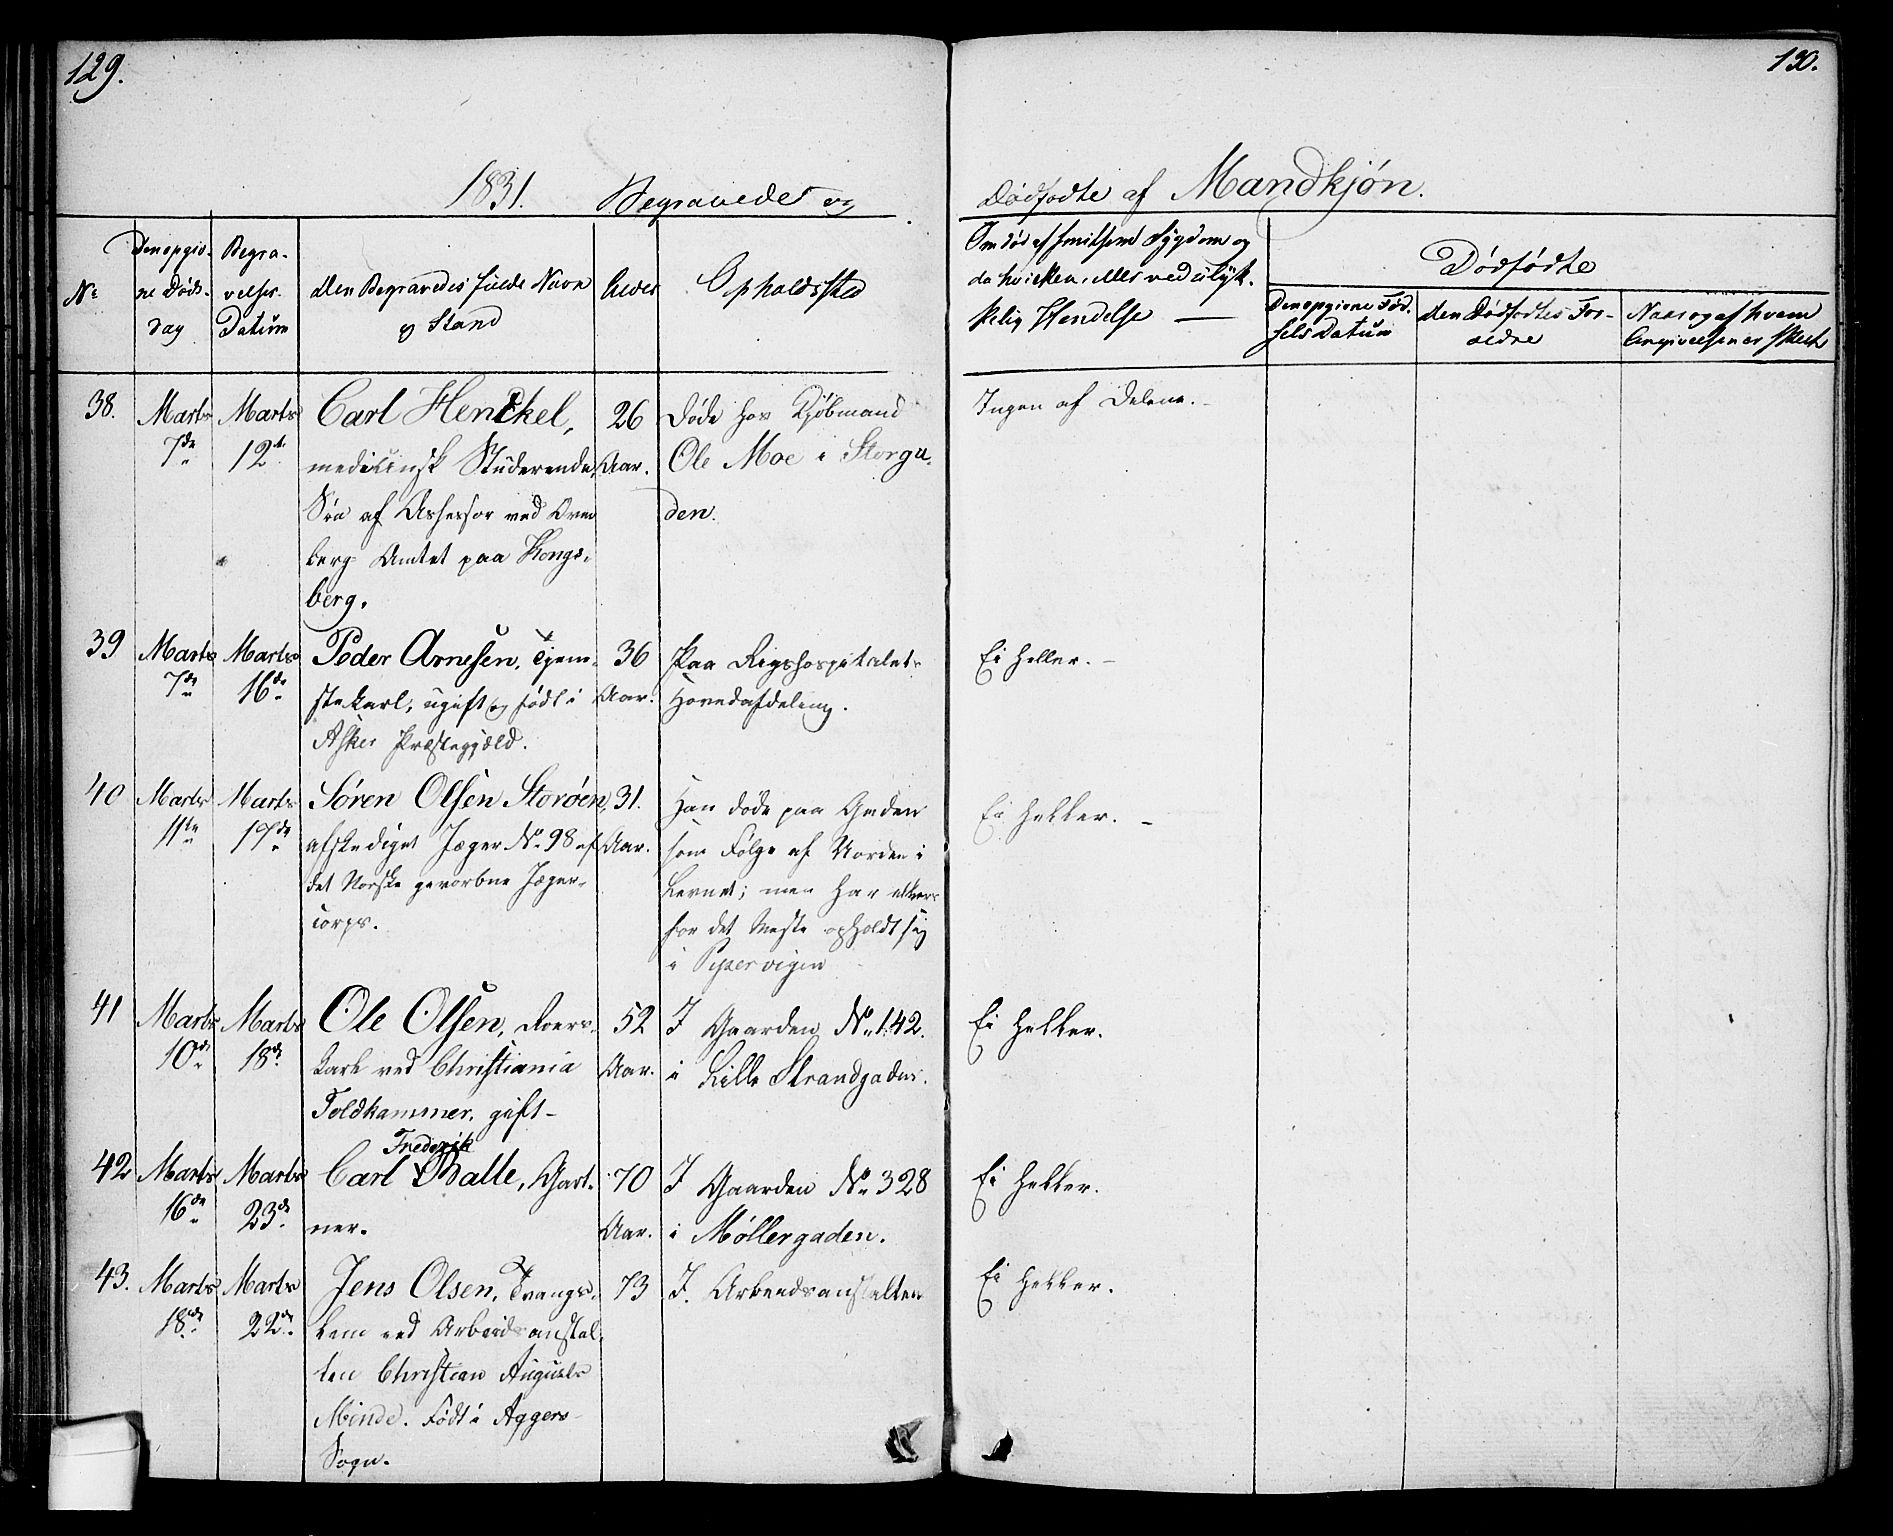 129.
130.
1831. Begravede og
Dødfødte af Mandkjøn.
No
Den opgiv-
ne Døds-
dag
Begra-
velses
Datum
den Begravedes fulde Navn
og Stand
Alder
Opholdssted
Om død af smitsom Sygdom og
da hvilken, eller ved ulyk-
kelig Hendelse
Dødfødte
Den opgivne Fød-
sels Datum
den Dødfødtes For-
ældre
Naar og af hvem
Angivelsen er skeet
38.
Marts
7de
Marts
12te
Carl Henckel,
medicinsk Studerende,
Søn af Assessor ved Over
berg Amtet paa Kongs-
berg.
26
Aar.
døde hos Kjøbmand
Ole Moe i Storga-
den.
Ingen af Delene.
39
Marts
7de
Marts
16de
Peder Arnesen, Tjene-
stekarl, ugift og født i
Asker Præstegjæld.
36
Aar.
Paa Rigshospitalets
Hovedafdeling.
Ei heller.
40
Marts
11te
Marts
17de
Søren Olsen Storøen,
afskediget Jæger No 98 af
det Norske gevorbne Jæger-
corps.
31.
Aar.
Han døde paa Gaden
som Følge af
i Pipervigen
for det meste opholdt sig
Ei heller.
41
Marts
10de
Marts
18de
Ole Olsen, Roers-
karl ved Christiania
Toldkammer, gift
52
Aar.
I Gaarden No 142.
i Lille Strandgaden.
Ei heller.
42
Marts
16de
Marts
23de
Frederik
Carl Balle, Gart-
ner.
70
Aar.
I Gaarden No 328
i Møllergaden.
Ei heller.
43.
Marts
18de
Marts
22de
Jens Olsen, Tvangs-
lem ved Arbeidsanstal-
ten Christian Augusts
Minde. Født i Aggers
Sogn.
73
I Arbeidsanstalten
Ei heller.